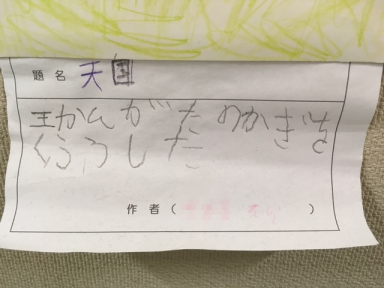 題名 天国
王かんがたのかぎを
くろうした
作者（ ）